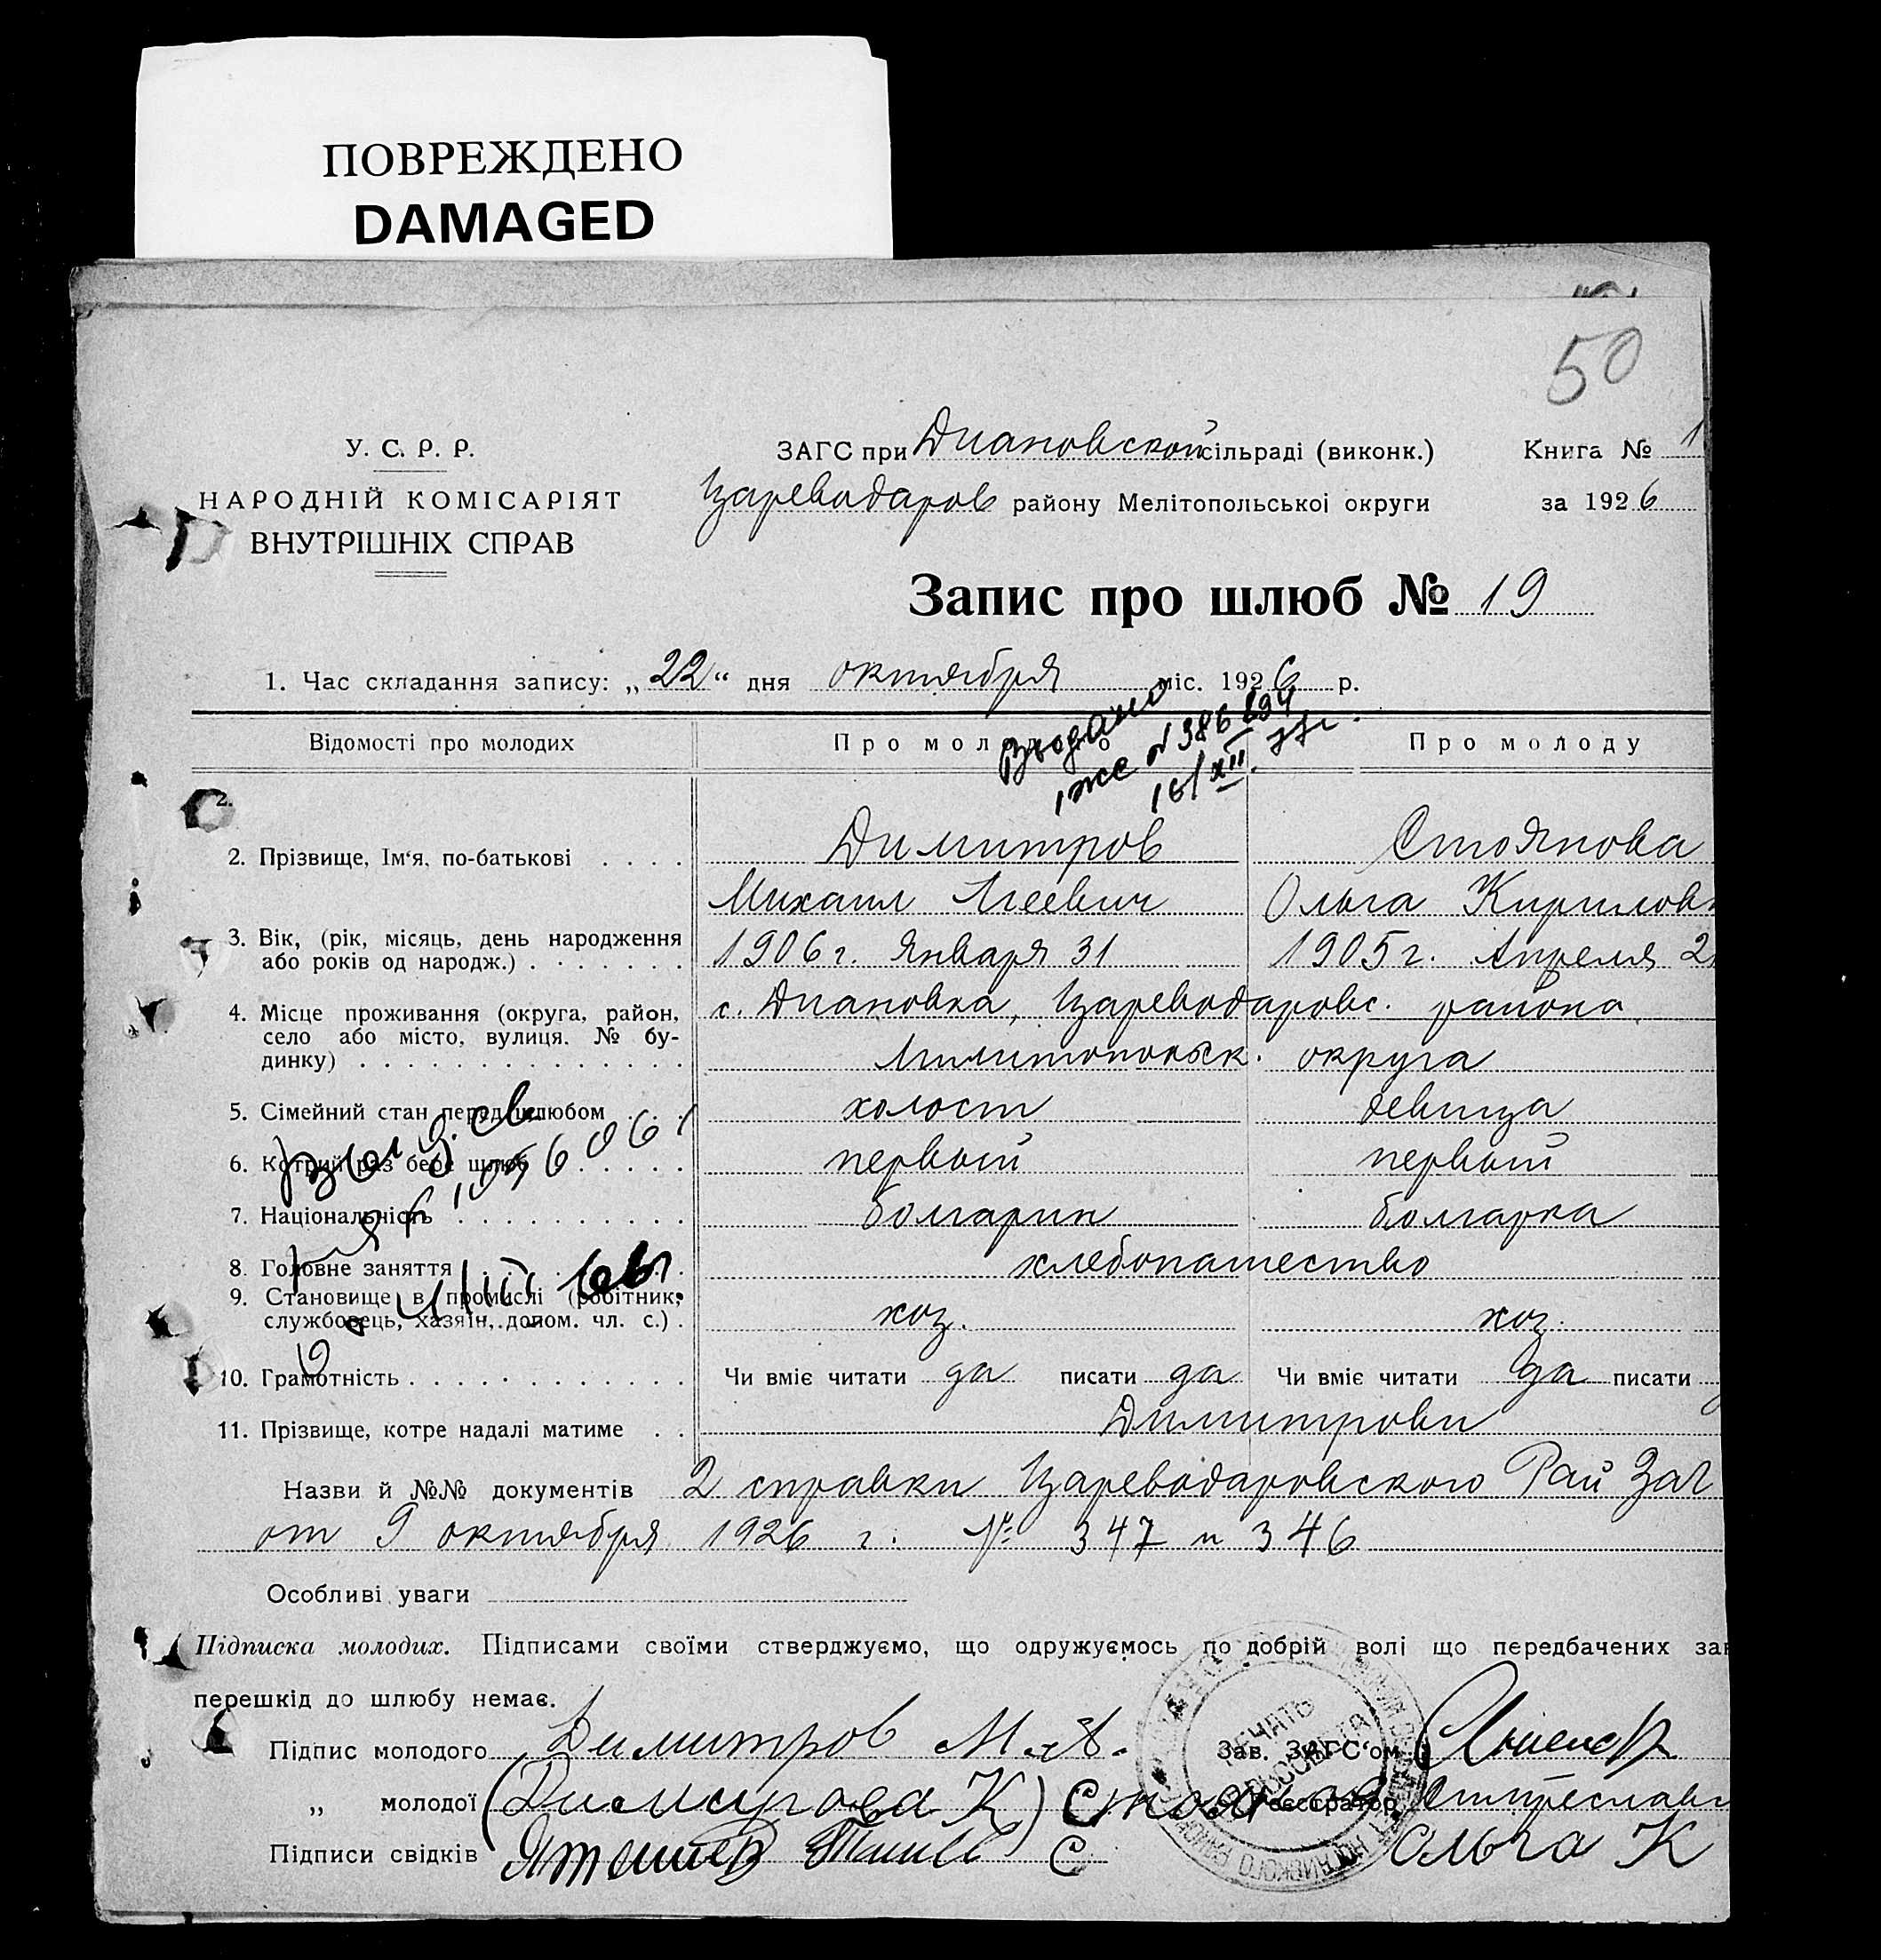 ПОВРЕЖДЕНО
DAMAGED
50
У. С. Р. Р.
НАРОДНІЙ КОМІСАРІЯТ
ВНУТРІШНІХ СПРАВ
ЗАГС при Диановской сільраді (виконк.)
Цареводаров району Мелітопольської округи
Книга № 1
за 1926
Запис про шлюб № 19
1. Час складання запису: „22“ дня октября міс. 1926 р.
Відомості про молодих Про молодого Про молоду
2. Прізвище, Ім‘я, по-батькові . . . . Димитров Стоянова
Михаил Агеевич Ольга Кирилов
3. Вік, (рік, місяць, день народження
або років од народж.) . . . . . . . 1906 г. Января 31 1905 г. Апреля 2
4. Місце проживання (округа, район,
село або місто, вулиця. № бу-
динку) . . . . . . . . . . . . . . .
с. Диановка, Цареводаровс. района,
Милитопольск. округа
5. Сімейний стан перед шлюбом . . . холост девица
6. Котрий раз бере шлюб . . . . . первый первый
7. Національність . . . . . . . . . . болгарин болгарка
8. Головне заняття . . . . . . . . . хлебопашество
9. Становище в промислі (робітник,
службовець, хазяїн, допом. чл. с.) . хоз. хоз.
10. Грамотність . . . . . . . . . . . . Чи вміє читати да писати да Чи вміє читати да писати
11. Прізвище, котре надалі матиме . . Димитрови
Назви й №№ документів 2 справки Цареводаровского Рай Заг
от 9 октября 1926 г. № 347 и 346
Особливі уваги
Підписка молодих. Підписами своїми стверджуємо, що одружуємось по добрій волі що передбачених зак
перешкід до шлюбу немає.
Підпис молодого Димитров М. А. Зав. ЗАГС‘ом
„ молодої (Димитрова К) Стоянова Реєстратор
Підписи свідків Ольга К
Выдано
ПЕЧАТЬ
СЕЛЬСОВЕТА